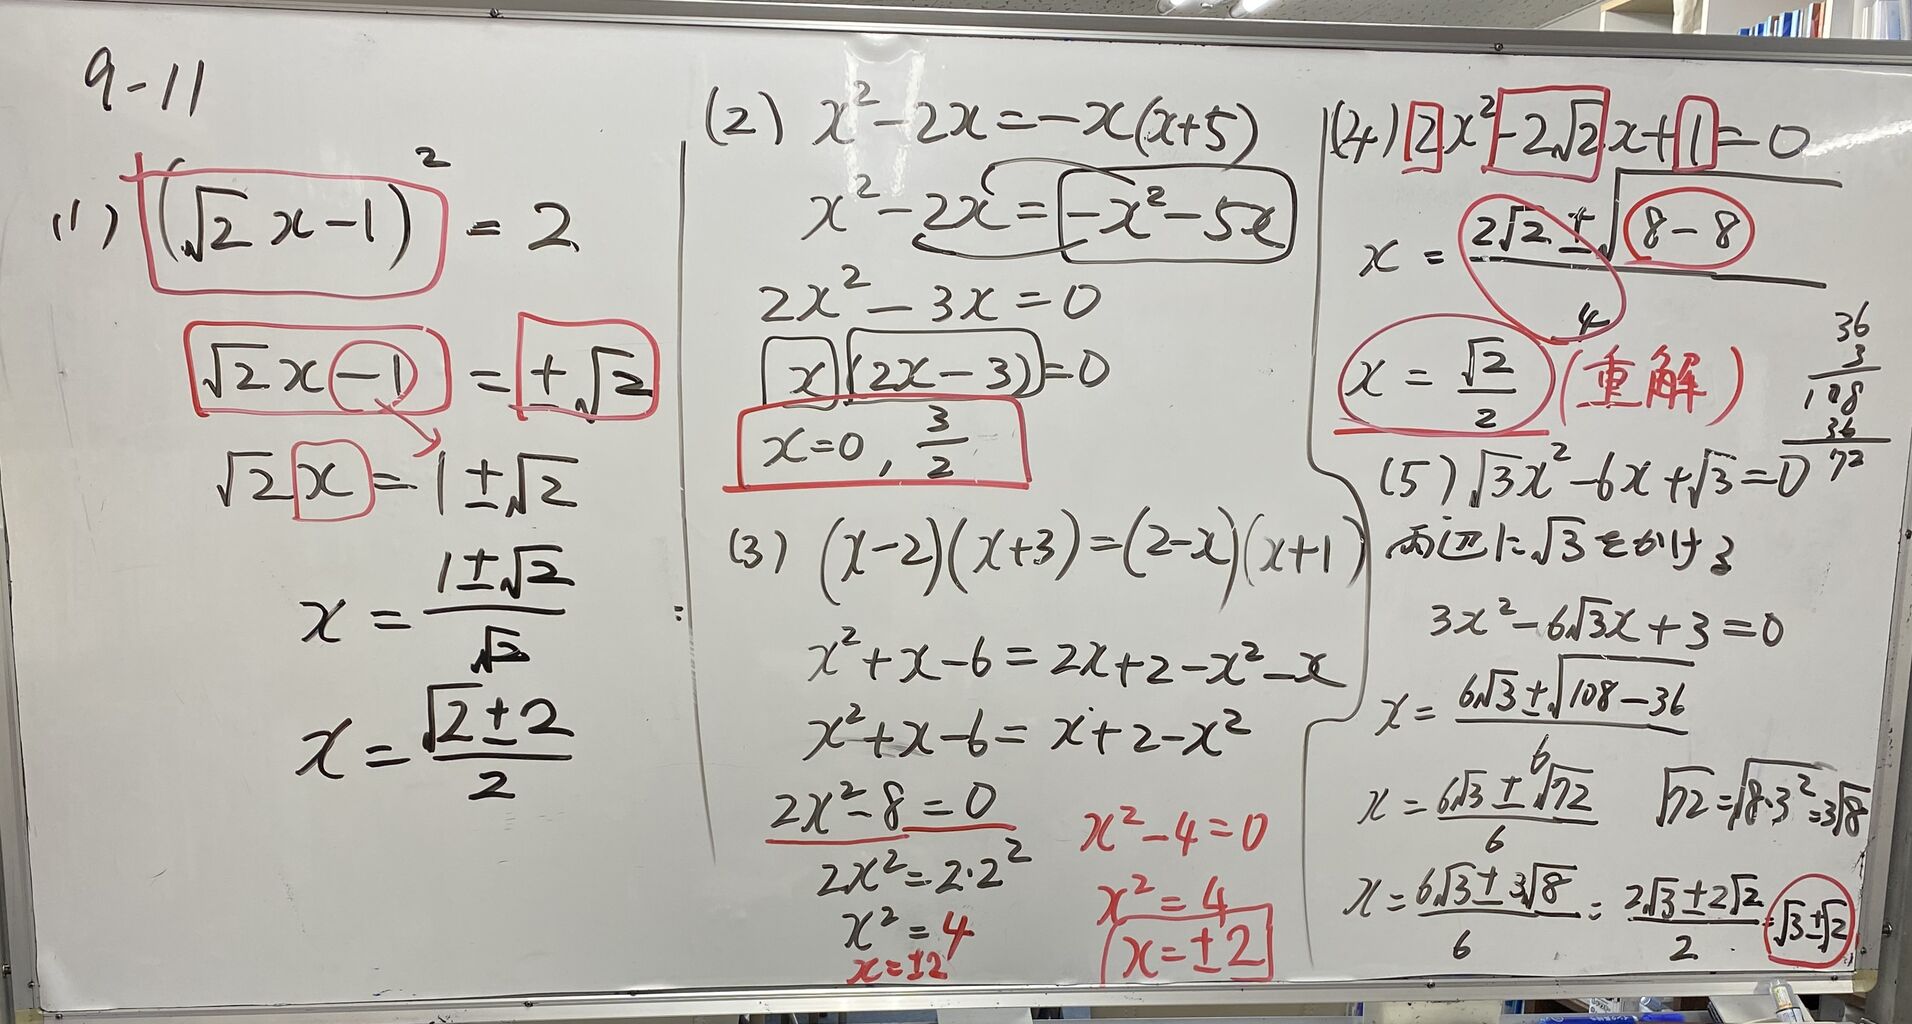 9-11
(1) (√2 x-1)² = 2
√2 x -1 = ±√2
√2 x = 1±√2
x = (1±√2)/√2
x = (√2±2)/2
(2) x²-2x=-x(x+5)
x²-2x=-x²-5x
2x²-3x=0
x(2x-3)=0
x=0, 3/2
(3) (x-2)(x+3)=(2-x)(x+1)
x²+x-6=2x+2-x²-x
x²+x-6=x+2-x²
2x²-8=0
2x²=2·2²
x²=4
x=±2
x²-4=0
x²=4
x=±2
(4) 2x²-2√2x+1=0
x = (2√2±√(8-8))/4
x = √2/2 (重解)
36
3
108
36
72
(5) √3x²-6x+√3=0
両辺に√3をかける
3x²-6√3x+3=0
x=(6√3±√(108-36))/6
x=(6√3±√72)/6
6
√72=√(8·3²)=3√8
x=(6√3±3√8)/6=(2√3±2√2)/2=√3±√2